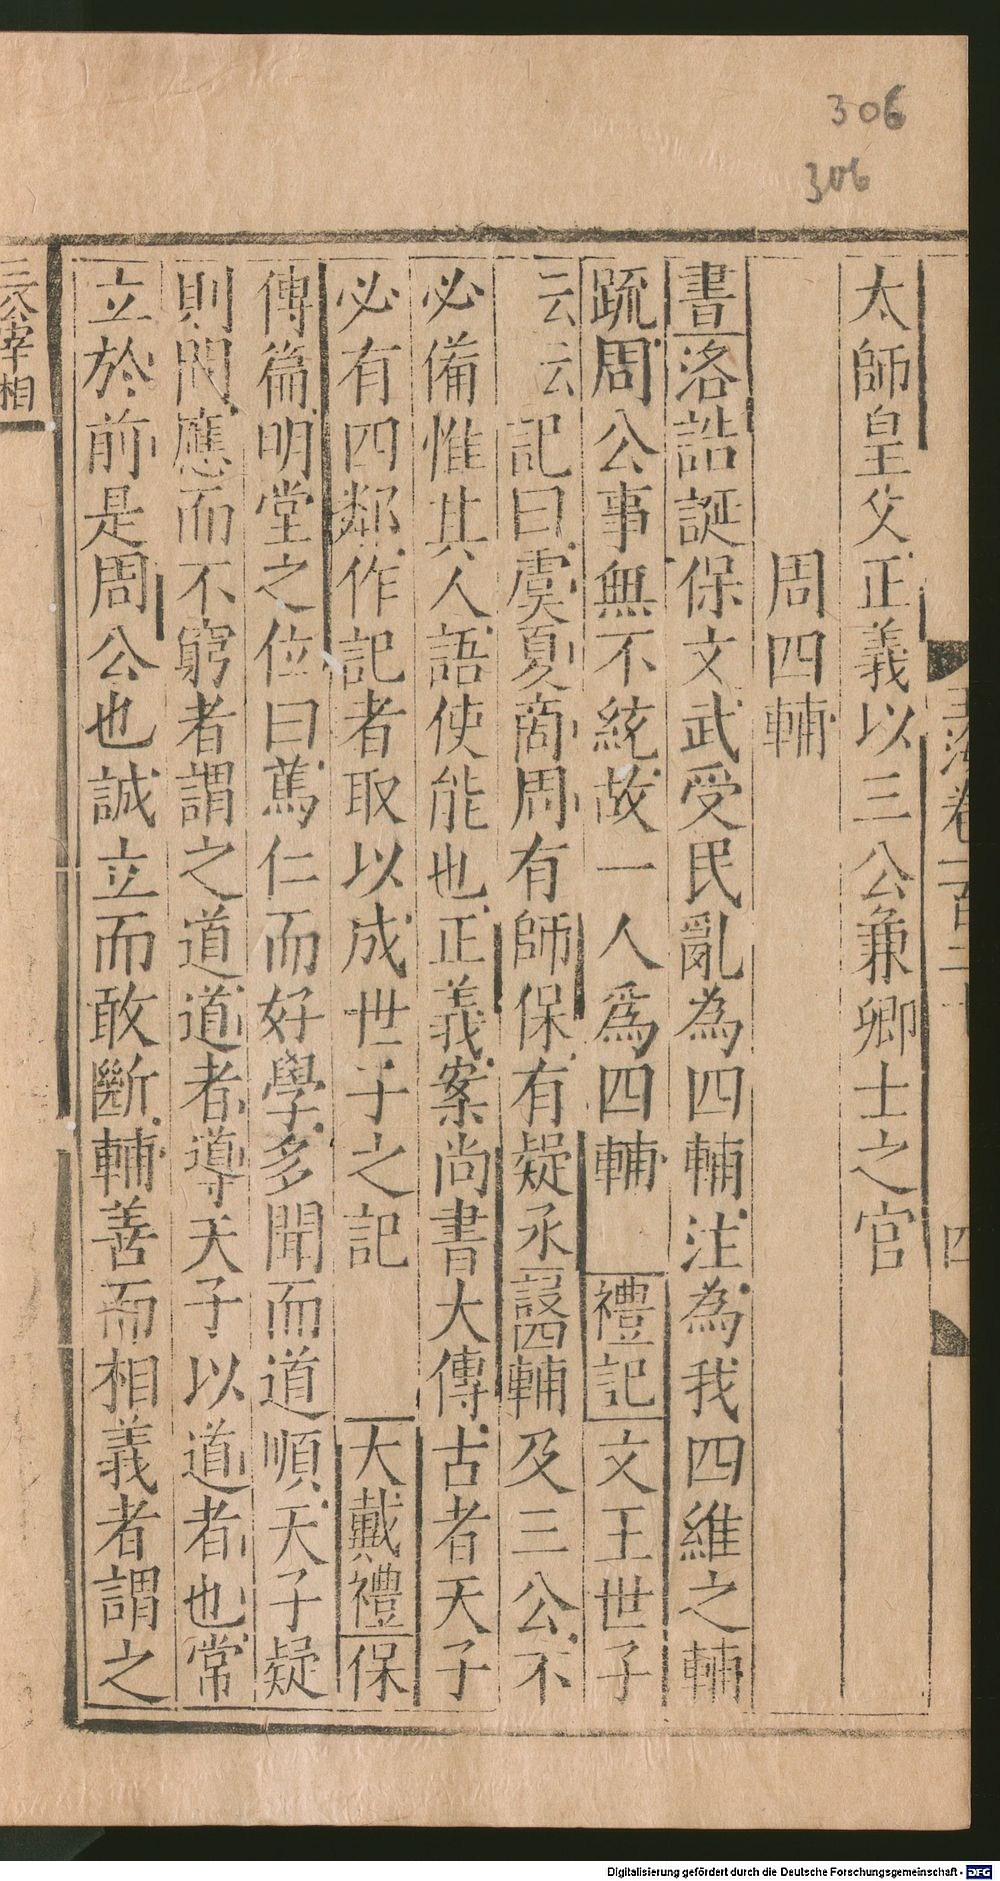 306
306
太師皇父正義以三公兼卿士之官
周四輔
書洛誥誕保文武受民亂為四輔注為我四維之輔
疏周公事無不統故一人爲四輔 禮記文王世子
云云記曰虞夏商周有師保有疑丞設四輔及三公不
必備惟其人語使能也正義案尚書大傳古者天子
必有四鄰作記者取以成世子之記 大戴禮保
傳篇明堂之位曰篤仁而好學多聞而道順天子疑
則問應而不窮者謂之道道者導天子以道者也常
立於前是周公也誠立而敢斷輔善而相義者謂之
三公宰相
玉海卷一百二十
四
Digitalisierung gefördert durch die Deutsche Forschungsgemeinschaft - DFG